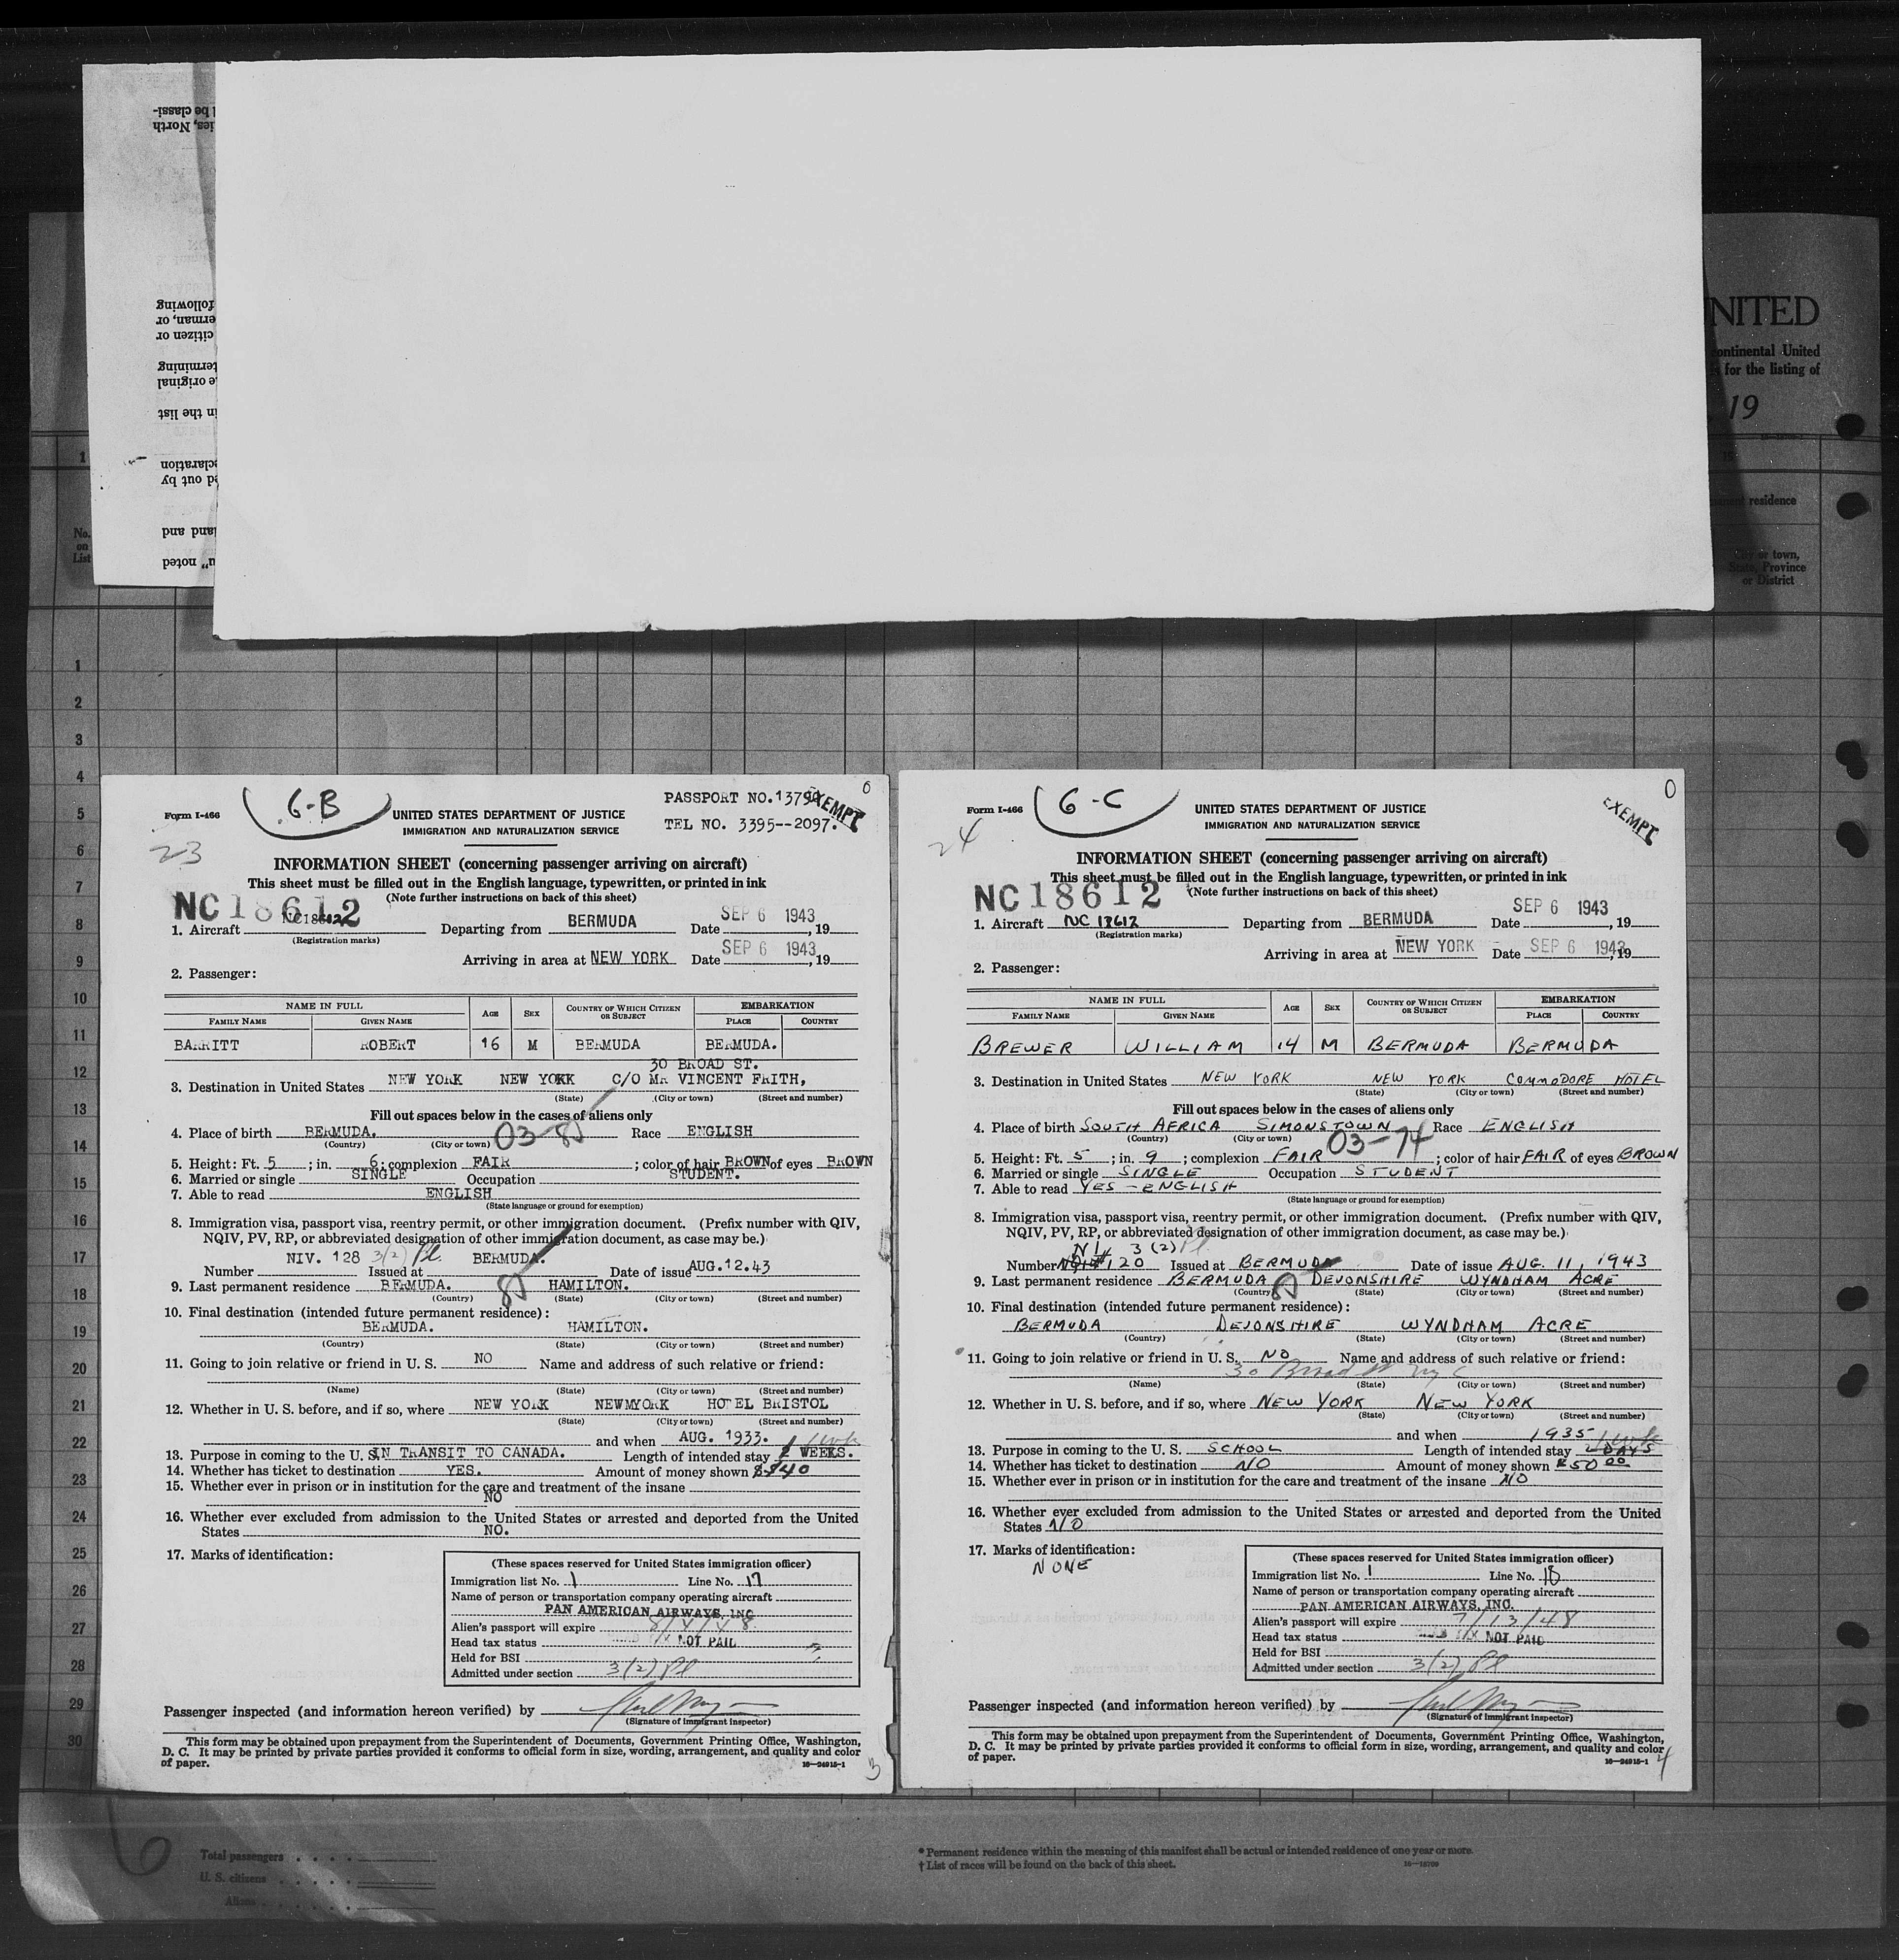 NITED
continental United
for the listing of
19
1
residence
No.
on
List
or town,
State, Province
or District
1
2
3
4
5
6
7
8
9
10
11
12
13
14
15
16
17
18
19
20
21
22
23
24
25
26
27
28
29
30
Form I-466
6-B
UNITED STATES DEPARTMENT OF JUSTICE
IMMIGRATION AND NATURALIZATION SERVICE
PASSPORT NO.
EXEMPT
0
TEL NO. 3395--2097.
23
INFORMATION SHEET (concerning passenger arriving on aircraft)
This sheet must be filled out in the English language, typewritten, or printed in ink
(Note further instructions on back of this sheet)
NC18612
1. Aircraft NC18612 Departing from BERMUDA Date SEP 6 1943, 19
(Registration marks)
Arriving in area at NEW YORK Date SEP 6 1943, 19
2. Passenger:
NAME IN FULL AGE SEX COUNTRY OF WHICH CITIZEN OR SUBJECT EMBARKATION
FAMILY NAME GIVEN NAME PLACE COUNTRY
BARRITT ROBERT 16 M BERMUDA BERMUDA.
30 BROAD ST.
3. Destination in United States NEW YORK NEW YORK C/O MR VINCENT FRITH,
(State) (City or town) (Street and number)
Fill out spaces below in the cases of aliens only
4. Place of birth BERMUDA. 03-85 Race ENGLISH
(Country) (City or town)
5. Height: Ft. 5; in. 6; complexion FAIR; color of hair BROWN of eyes BROWN
6. Married or single SINGLE Occupation STUDENT.
7. Able to read ENGLISH
(State language or ground for exemption)
8. Immigration visa, passport visa, reentry permit, or other immigration document. (Prefix number with QIV,
NQIV, PV, RP, or abbreviated designation of other immigration document, as case may be.)
Number NIV. 128 3(2) Issued at BERMUDA. Date of issue AUG.12.43
9. Last permanent residence BERMUDA. 85 HAMILTON.
(Country) (State) (City or town) (Street and number)
10. Final destination (intended future permanent residence):
BERMUDA. HAMILTON.
(Country) (State) (City or town) (Street and number)
11. Going to join relative or friend in U. S. NO Name and address of such relative or friend:
(Name) (State) (City or town) (Street and number)
12. Whether in U. S. before, and if so, where NEW YORK NEWMYORK HOTEL BRISTOL
(State) (City or town) (Street and number)
and when AUG. 1933. 1 wk
13. Purpose in coming to the U. S. IN TRANSIT TO CANADA. Length of intended stay 2 WEEKS.
14. Whether has ticket to destination YES. Amount of money shown $340
15. Whether ever in prison or in institution for the care and treatment of the insane
NO
16. Whether ever excluded from admission to the United States or arrested and deported from the United
States NO.
17. Marks of identification:
(These spaces reserved for United States immigration officer)
Immigration list No. 1 Line No. 17
Name of person or transportation company operating aircraft
PAN AMERICAN AIRWAYS, INC
Alien's passport will expire 8/4/48
Head tax status NOT PAID
Held for BSI
Admitted under section 3(2)
Passenger inspected (and information hereon verified) by
(Signature of immigrant inspector)
This form may be obtained upon prepayment from the Superintendent of Documents, Government Printing Office, Washington,
D. C. It may be printed by private parties provided it conforms to official form in size, wording, arrangement, and quality and color
of paper.
16—24915-1
3
Form I-466
6-C
UNITED STATES DEPARTMENT OF JUSTICE
IMMIGRATION AND NATURALIZATION SERVICE
EXEMPT
0
24
INFORMATION SHEET (concerning passenger arriving on aircraft)
This sheet must be filled out in the English language, typewritten, or printed in ink
(Note further instructions on back of this sheet)
NC18612
1. Aircraft NC 18612 Departing from BERMUDA Date SEP 6 1943, 19
(Registration marks)
Arriving in area at NEW YORK Date SEP 6 1943, 19
2. Passenger:
NAME IN FULL AGE SEX COUNTRY OF WHICH CITIZEN OR SUBJECT EMBARKATION
FAMILY NAME GIVEN NAME PLACE COUNTRY
BREWER WILLIAM 14 M BERMUDA BERMUDA
3. Destination in United States NEW YORK NEW YORK COMMODORE HOTEL
(State) (City or town) (Street and number)
Fill out spaces below in the cases of aliens only
4. Place of birth SOUTH AFRICA SIMONSTOWN Race ENGLISH
(Country) (City or town) 03-74
5. Height: Ft. 5; in. 9; complexion FAIR; color of hair FAIR of eyes BROWN
6. Married or single SINGLE Occupation STUDENT
7. Able to read YES - ENGLISH
(State language or ground for exemption)
8. Immigration visa, passport visa, reentry permit, or other immigration document. (Prefix number with QIV,
NQIV, PV, RP, or abbreviated designation of other immigration document, as case may be.)
3 (2)
Number 120 Issued at BERMUDA Date of issue AUG. 11, 1943
9. Last permanent residence BERMUDA 85 DEVONSHIRE WYNDHAM ACRE
(Country) (State) (City or town) (Street and number)
10. Final destination (intended future permanent residence):
BERMUDA DEVONSHIRE WYNDHAM ACRE
(Country) (State) (City or town) (Street and number)
11. Going to join relative or friend in U. S. NO Name and address of such relative or friend:
30 Broad St NYC
(Name) (State) (City or town) (Street and number)
12. Whether in U. S. before, and if so, where NEW YORK NEW YORK
(State) (City or town) (Street and number)
and when 1935 1 wk
13. Purpose in coming to the U. S. SCHOOL Length of intended stay 2 DAYS
14. Whether has ticket to destination NO Amount of money shown $50 00
15. Whether ever in prison or in institution for the care and treatment of the insane NO
16. Whether ever excluded from admission to the United States or arrested and deported from the United
States NO
17. Marks of identification:
NONE
(These spaces reserved for United States immigration officer)
Immigration list No. 1 Line No. 18
Name of person or transportation company operating aircraft
PAN AMERICAN AIRWAYS, INC.
Alien's passport will expire 7/13/48
Head tax status NOT PAID
Held for BSI
Admitted under section 3(2)
Passenger inspected (and information hereon verified) by
(Signature of immigrant inspector)
This form may be obtained upon prepayment from the Superintendent of Documents, Government Printing Office, Washington,
D. C. It may be printed by private parties provided it conforms to official form in size, wording, arrangement, and quality and color
of paper.
16—24915-1
4
6
Total passengers
U. S. citizens
Aliens
* Permanent residence within the meaning of this manifest shall be actual or intended residence of one year or more.
† List of races will be found on the back of this sheet.